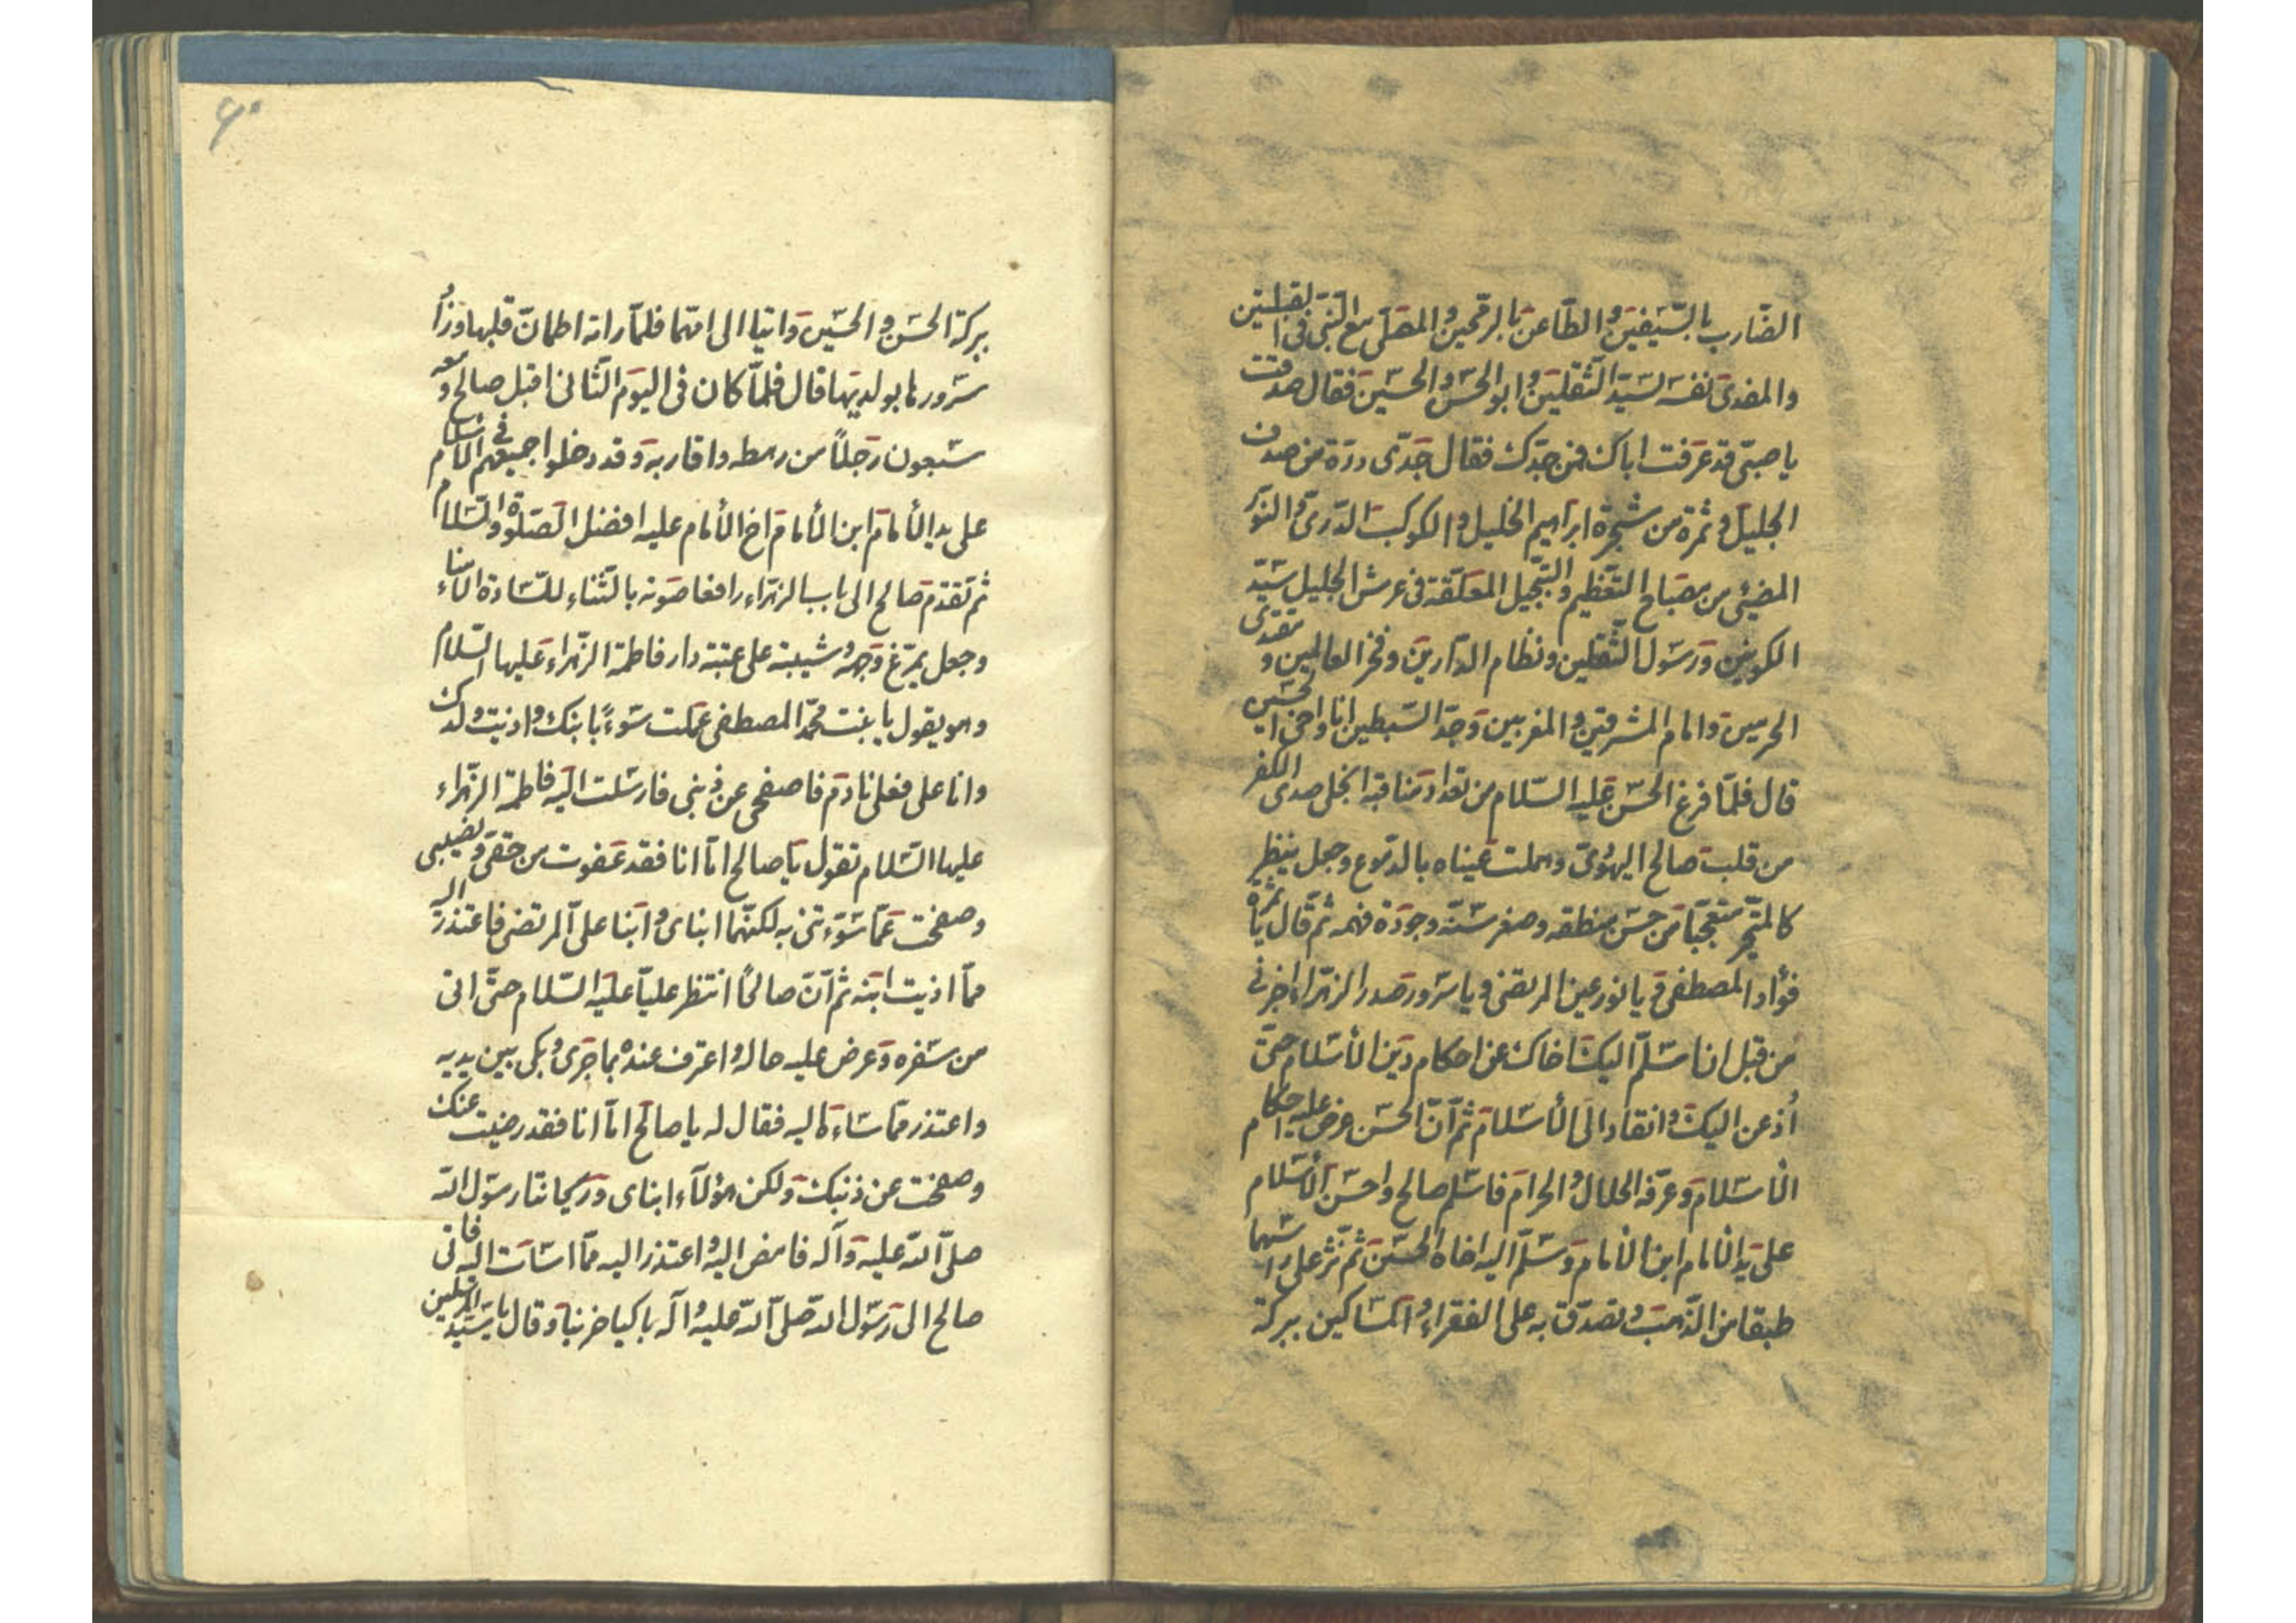 الضارب بالسيفين والطاعن بالرمحين والمصلى مع النبى فى القبلتين
والمفدى نفسه لسيد الثقلين وابو الحسن والحسين فقال صدقت
يا صبى قد عرفت اباك فمن جدك فقال جدى درة من صدف
الجليل وثمرة من شجرة ابراهيم الخليل والكوكب الدرى والنور
المضيئ من مصباح التعظيم والتبجيل المعلقة فى عرش الجليل سيد
الكونين ورسول الثقلين ونظام الدارين وفخر العالمين ومقتدى
الحرمين وامام المشرقين والمغربين وجد السبطين انا واخى الحسين
قال فلما فرغ الحسن عليه السلام من تعداد مناقبه انجلى صدى الكفر
من قلب صالح اليهودى وهملت عيناه بالدموع وجعل ينظر
كالمتحير متعجبا من حسن منطقه وصغر سنه وجودة فهمه ثم قال يا ثمرة
فؤاد المصطفى ويا نور عين المرتضى ويا سرور صدر الزهراء اخبرنى
من قبل ان اسلم اليك اخاك عن احكام دين الأسلام حتى
أذعن اليك وانقاد الى الأسلام ثم ان الحسن عرض عليه احكام
الأسلام وعرفه الحلال والحرام فاسلم صالح واحسن الأسلام
على يد الأمام ابن الأمام وسلم اليه اخاه الحسين ثم نثر على راسهما
طبقا من الذهب وتصدق به على الفقراء والمساكين ببركة
۶۰
ببركة الحسن والحسين واتيا الى امهما فلما راته اطمان قلبها وزاد
سرورها بولديها قال فلما كان فى اليوم الثانى اقبل صالح ومعه
سبعون رجلاً من رهطه واقاربه وقد دخلوا جميعهم فى الأسلام
على يد الأمام ابن الأمام اخ الأمام عليه افضل الصلوة والسلام
ثم تقدم صالح الى باب الزهراء رافعا صوته بالثناء للسادة الأمناء
وجعل يمرغ وجهه وشيبته على عتبة دار فاطمة الزهراء عليها السلام
وهو يقول يا بنت محمد المصطفى عملت سوءً بابنك واذيت ولدك
وانا على فعلى نادم فاصفحى عن ذنبى فارسلت اليه فاطمة الزهراء
عليها السلام تقول يا صالح اما انا فقد عفوت من حقى ونصيبى
وصفحت عما سوءتنى به لكنهما ابناى وابنا على المرتضى فاعتذر اليه
مما اذيت ابنه ثم ان صالحًا انتظر عليا عليه السلام حتى اتى
من سفره وعرض عليه حاله واعترف عنده بما جرى وبكى بين يديه
واعتذر مما اساء اليه فقال له يا صالح اما انا فقد رضيت عنك
وصفحت عن ذنبك ولكن هؤلآء ابناى وريحانتا رسول الله
صلى الله عليه وآله فامض اليه واعتذر اليه مما اسات اليه فاتى
صالح الى رسول الله صلى الله عليه وآله باكيا حزينا وقال يا سيد المرسلين